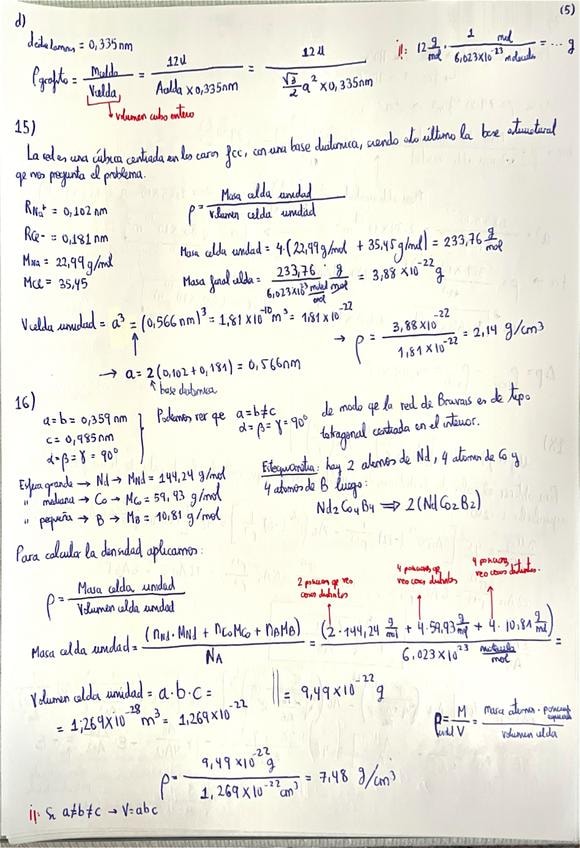 d)
(5)
dcelulamos = 0,335 nm
ρgrafito = Mcelda / Vcelda = 12u / Acelda × 0,335nm = 12u / (√3/2 a² × 0,335nm)
volumen cubo entero
¡!: 12 g/mol · 1 mol / 6,023×10⁻²³ moleculas = ... g
15)
La red es una cúbica centrada en las caras fcc, con una base diatomica, siendo esto último la base estructural
qe nos pregunta el problema.
RNa⁺ = 0,102 nm
RCl⁻ = 0,181 nm
MNa = 22,99 g/mol
MCl = 35,45
ρ = Masa celda unidad / Volumen celda unidad
Masa celda unidad = 4·(22,99 g/mol + 35,45 g/mol) = 233,76 g/mol
Masa final celda = 233,76 g/mol / 6,023×10²³ = 3,88×10⁻²² g
Vcelda unidad = a³ = (0,566 nm)³ = 1,81×10⁻¹⁰ m³ = 1,81×10⁻²²
→ ρ = 3,88×10⁻²² / 1,81×10⁻²² = 2,14 g/cm³
→ a = 2(0,102 + 0,181) = 0,566nm
base diatomica
16)
a = b = 0,359 nm
c = 0,985 nm
α = β = γ = 90°
Podemos ver qe a = b ≠ c
α = β = γ = 90°
de modo qe la red de Bravais es de tipo
tetragonal centrada en el interior.
Esfera grande → Nd → MNd = 144,24 g/mol
" mediana → Co → MCo = 59,93 g/mol
" pequeña → B → MB = 10,81 g/mol
Estequiometría: hay 2 atomos de Nd, 4 atomos de Co y
4 atomos de B luego:
Nd₂Co₄B₄ ⟹ 2(NdCo₂B₂)
Para calcular la densidad aplicamos:
ρ = Masa celda unidad / Volumen celda unidad
2 porque qe veo
caras distintas
4 porque qe
veo caras distintas
4 porque
veo caras distintas.
Masa celda unidad = (nNd·MNd + nCoMCo + nBMB) / NA = (2·144,24 g/mol + 4·59,93 g/mol + 4·10,81 g/mol) / 6,023×10²³ molecula/mol =
Volumen celda unidad = a·b·c =
= 1,269×10⁻²⁸ m³ = 1,269×10⁻²²
|| = 9,49×10⁻²² g
ρ = M / V = masa atomos · / volumen celda
ρ = 9,49×10⁻²² g / 1,269×10⁻²² cm³ = 7,48 g/cm³
¡!: Si a≠b≠c → V=abc